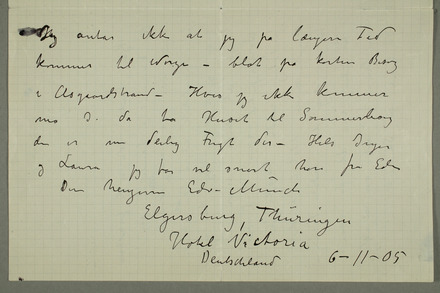 Jeg antar ikke at jeg på længere Tid
kommer til Norge – blot på kort Besøg
i Aasgaardstrand – Hvis jeg ikke kommer
må I da ha Huset til Sommerbrug
der er nu deilig Frugt der – Hils Inger
og Laura jeg hør vel snart hen fra Eder
Din hengivne Edv. Munch
Elgersburg, Thüringen
Hotel Victoria
Deutschland 6–11–05